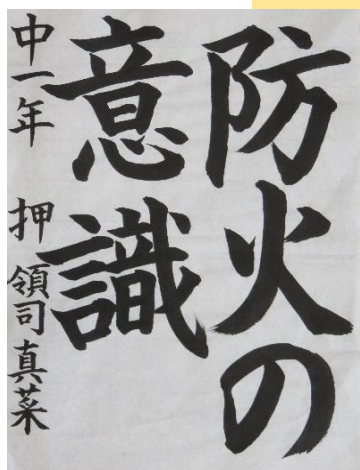 防火の
意識
中一年 押領司真菜